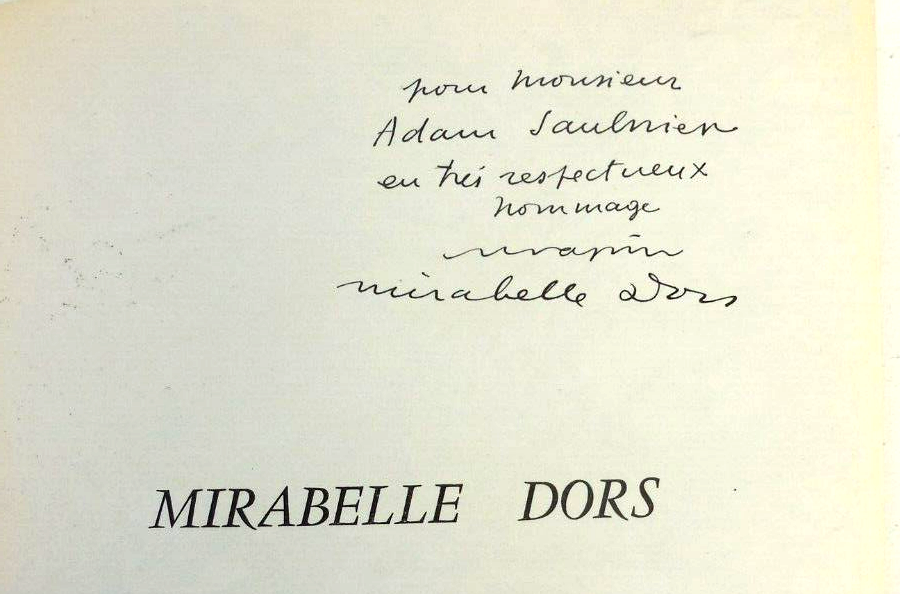 pour Monsieur
Adam Saulnier
en très respectueux
hommage
mirabelle Dors
MIRABELLE DORS